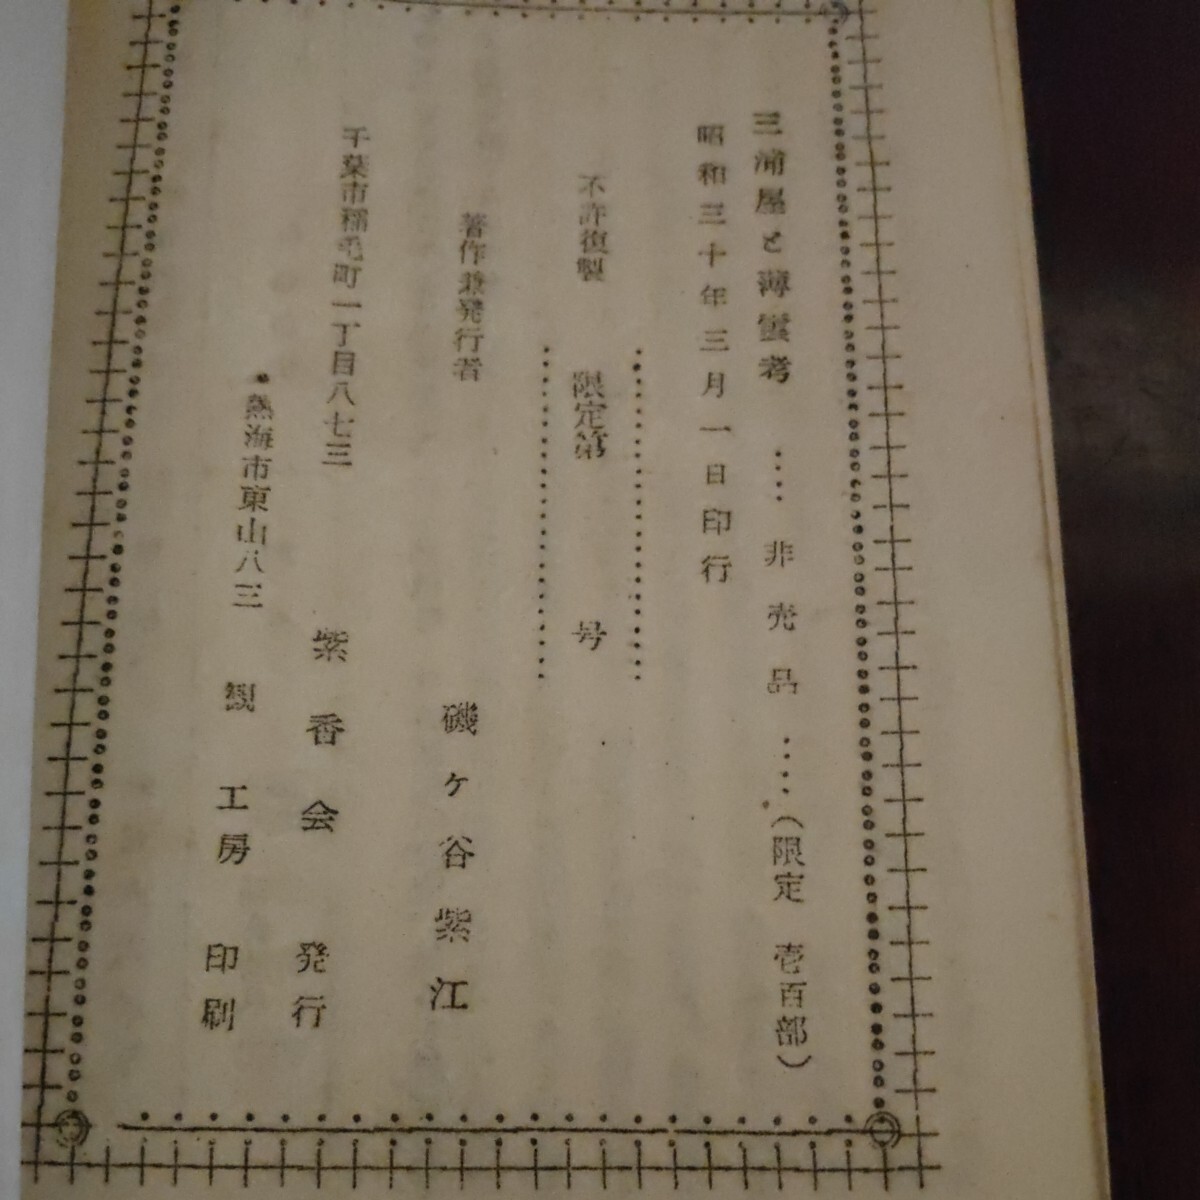 三浦屋と薄雲考 ‥‥ 非売品 ‥‥（限定 壱百部）
昭和三十年三月一日印行
不許複製 限定第 号
著作兼発行者 磯ヶ谷紫江
千葉市稲毛町一丁目八七三 紫香会 発行
熱海市東山八三 観工房 印刷